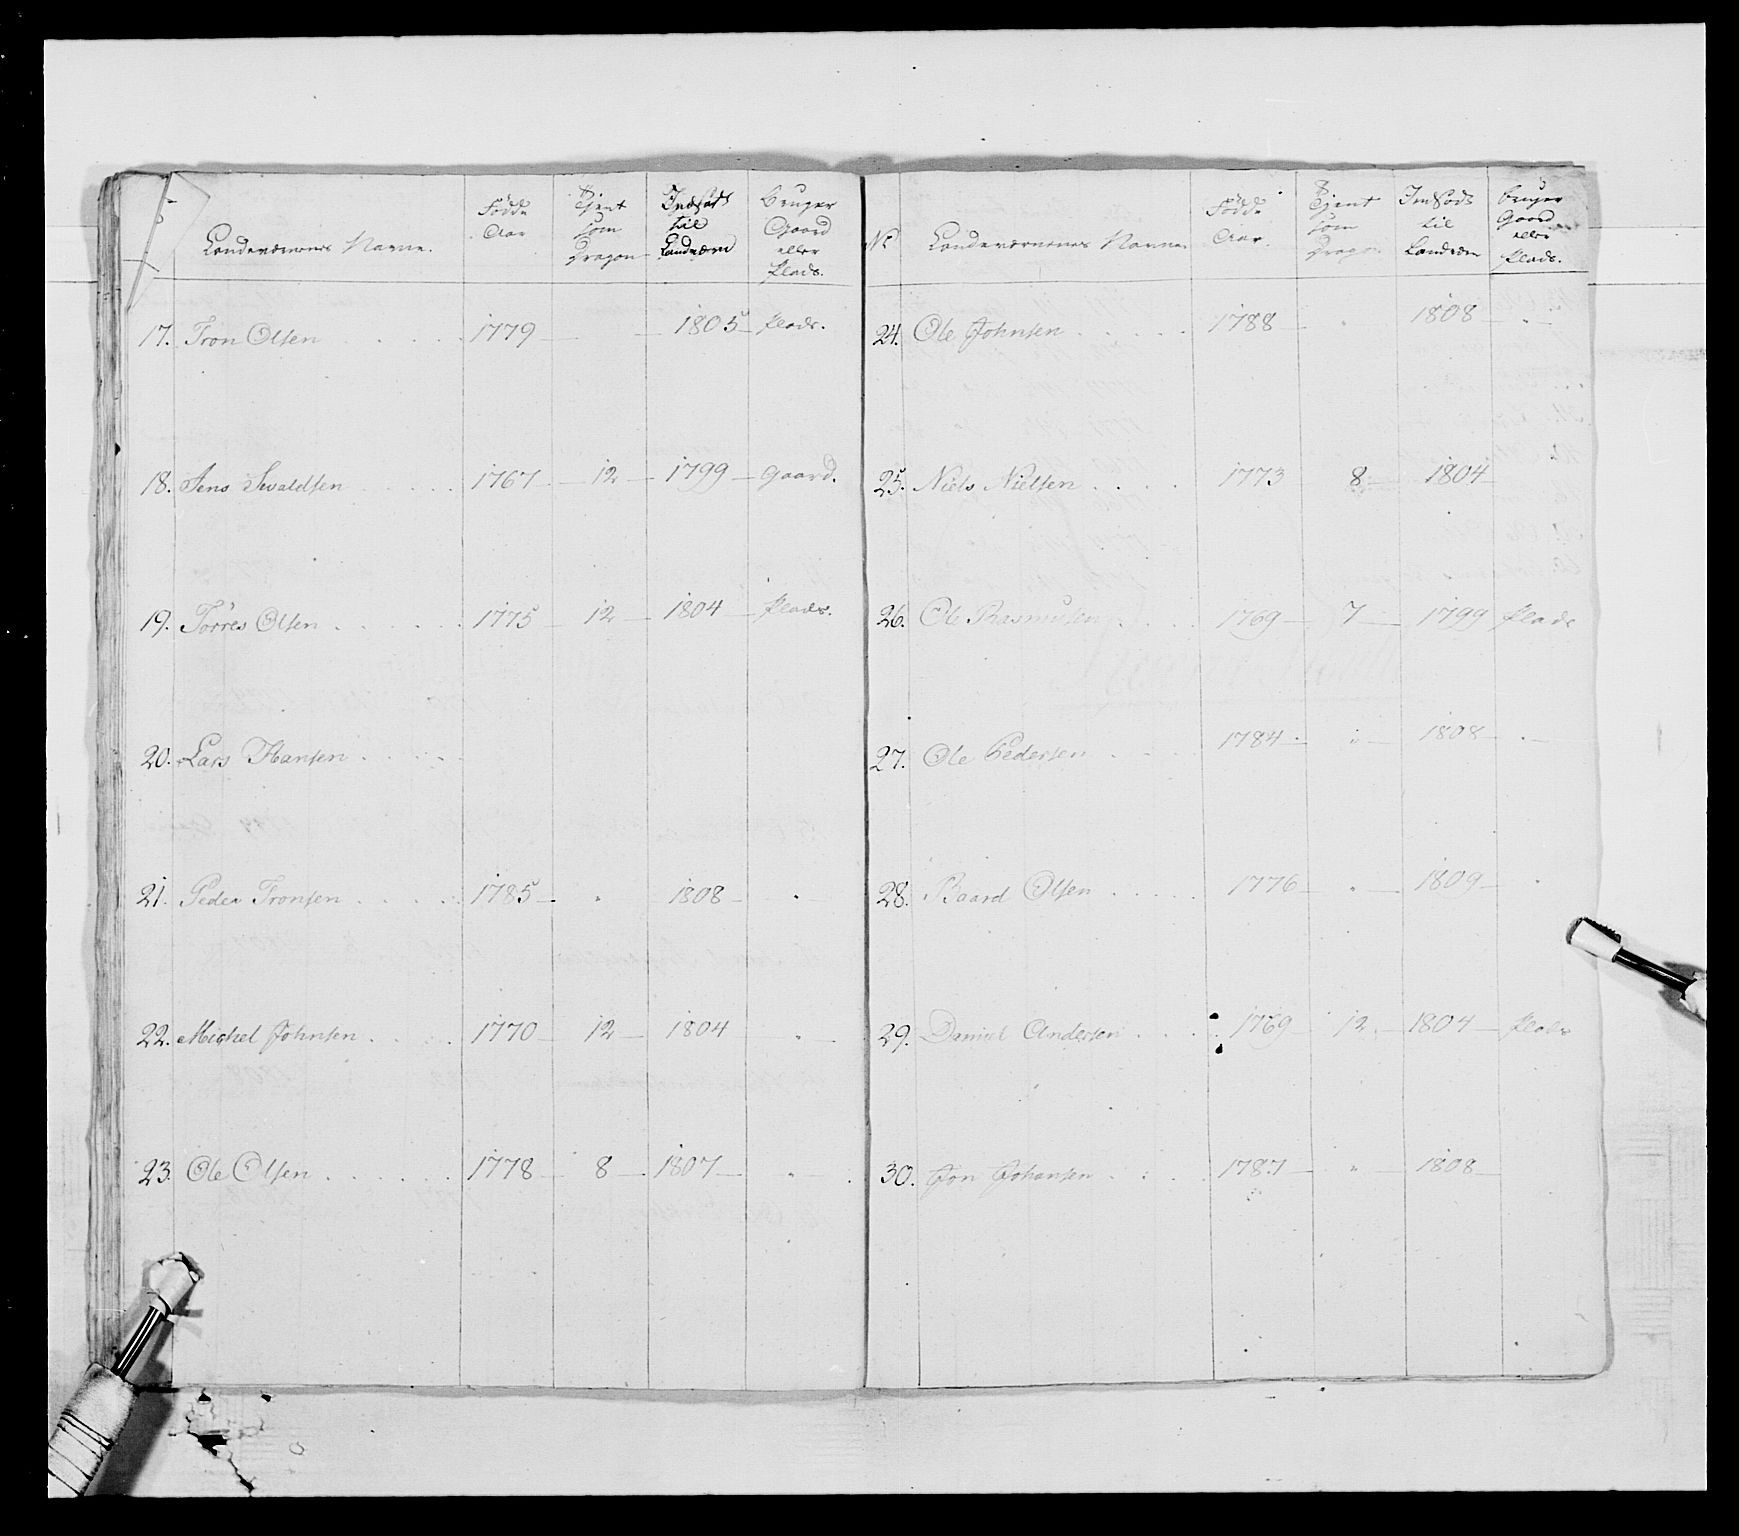 Landeværnernes Navne.
Födde Aar
Tjent som Dragon
Indsadt til Landværn
bruger Gaard eller Plads.
17. Tron Olsen 1779 1805 Plads.
18. Jens Sivaldsen 1767 12 1799 Gaard.
19. Törres Olsen 1775 12 1804 Plads.
20. Lars Hansen
21. Peder Tronsen 1785 " 1808 "
22. Michel Johnsen 1770 12 1804 "
23. Ole Olsen 1778 8 1807 "
No
Landeværnernes Navne
Födde Aar.
Tjent som Dragon
Indsadt til Landværn
bruger Gaard eller Plads.
24. Ole Johnsen 1788 " 1808 "
25. Niels Nielsen 1773 8 1804
26. Ole Rasmusen 1769 7 1799 Plads
27. Ole Pedersen 1784 " 1808 "
28. Baard Olsen 1776 " 1809 "
29. Daniel Andersen 1769 12 1804 Plads
30. Jon Johansen 1787 " 1808